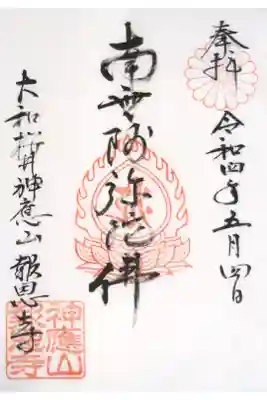 奉拝
令和四年五月四日
南無阿弥陀佛
大和桜井神應山 報恩寺
神應山
報恩寺